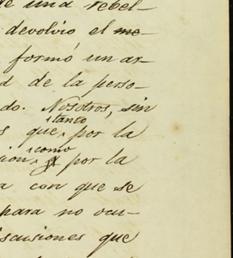 de una rebel-
devolvio el me-
formó un ar-
d de la perso-
do. Nosotros, sin
tanto
s que, por la
como
ion, y por la
a con que se
para no ocu-
iscusiones que